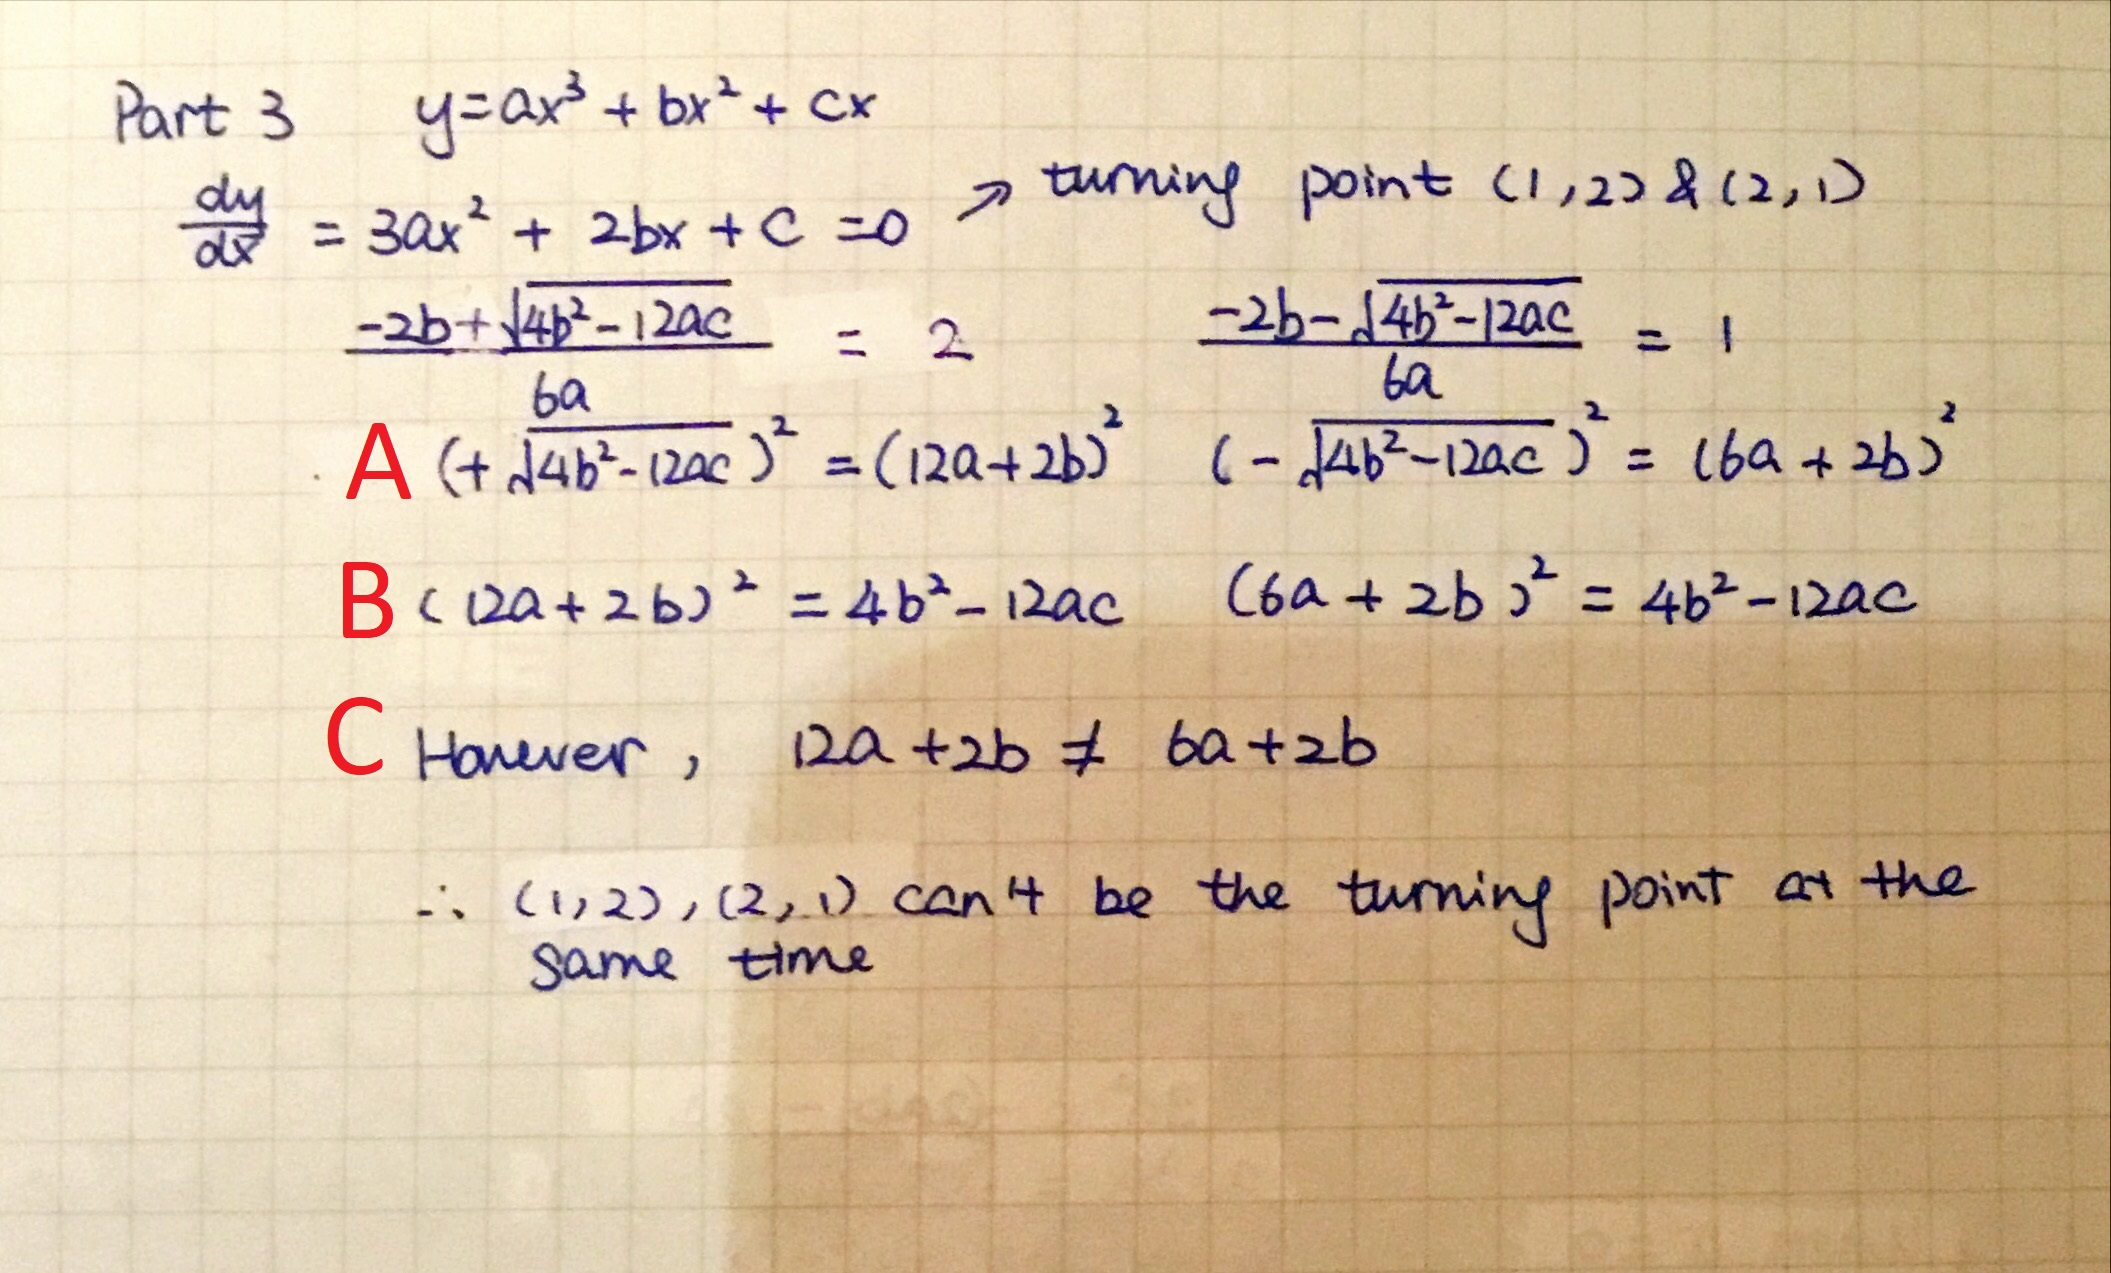 Part 3 y=ax³ + bx² + cx
dy/dx = 3ax² + 2bx + c =0 ↗ turning point (1,2) & (2,1)
(-2b+√(4b²-12ac))/6a = 2 (-2b-√(4b²-12ac))/6a = 1
A (+√(4b²-12ac))² = (12a+2b)² (-√(4b²-12ac))² = (6a+2b)²
B (12a+2b)² = 4b²-12ac (6a+2b)² = 4b²-12ac
C However, 12a+2b ≠ 6a+2b
∴ (1,2), (2,1) can't be the turning point at the
same time